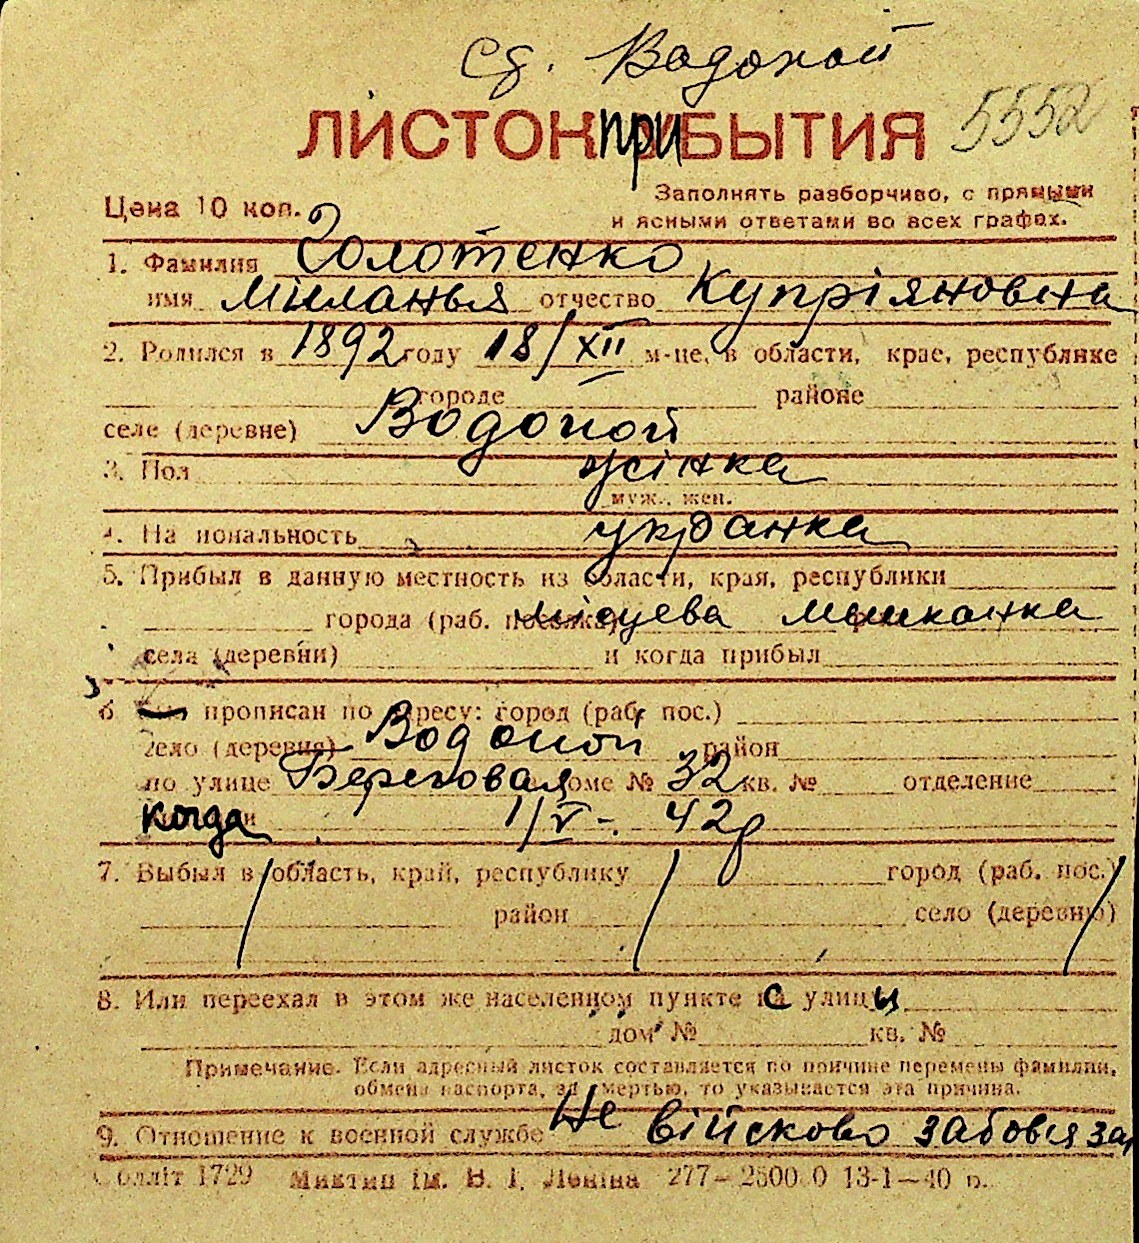 сд. Водопой
ЛИСТОК ПРИБЫТИЯ 5552
Цена 10 коп.
Заполнять разборчиво, с прямыми
и ясными ответами во всех графах.
1. Фамилия Голотенко
имя Миланья отчество Купріяновна
2. Родился в 1892 году 18/XII м-це, в области, крае, республике
городе районе
селе (деревне) Водопой
3. Пол жінка
муж., жен.
4. Национальность украінка
5. Прибыл в данную местность из области, края, республики
города (раб. поселка) місцева мешканка
села (деревни) и когда прибыл
6 прописан по адресу: город (раб. пос.)
село (деревня) Водопой район
по улице Береговая доме № 32 кв. № отделение
когда 1/V - 42 р
7. Выбыл в область, край, республику город (раб. пос.)
район село (деревню)
8. Или переехал в этом же населенном пункте с улицы
дом № кв. №
Примечание. Если адресный листок составляется по причине перемены фамилии,
обмена паспорта, за смертью, то указывается эта причина.
9. Отношение к военной службе Не військово забовяза
Облліт 1729 Миктип ім. В. І. Леніна 277—2500 0 13-1—40 р.